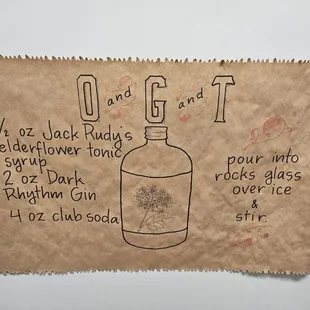 O and G and T
½ oz Jack Rudy's
elderflower tonic
syrup
2 oz Dark
Rhythm Gin
4 oz club soda
pour into
rocks glass
over ice
&
stir.